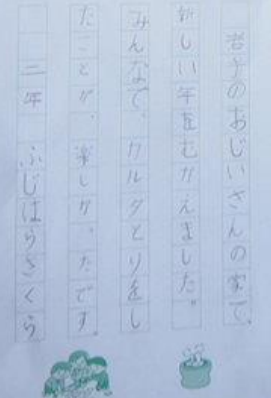 岩手のおじいさんの家で、
新しい年をむかえました。
みんなで、カルタとりをし
たことが、楽しかったです。
二年 ふじはらさくら